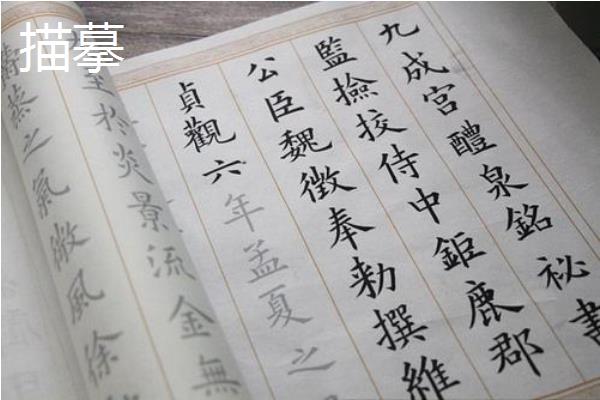 描摹
九成宮醴泉銘祕書
監撿挍侍中鉅鹿郡
公臣魏徵奉勑撰維
貞觀六年孟夏之
至於炎景流金無
蒸之氣微風徐